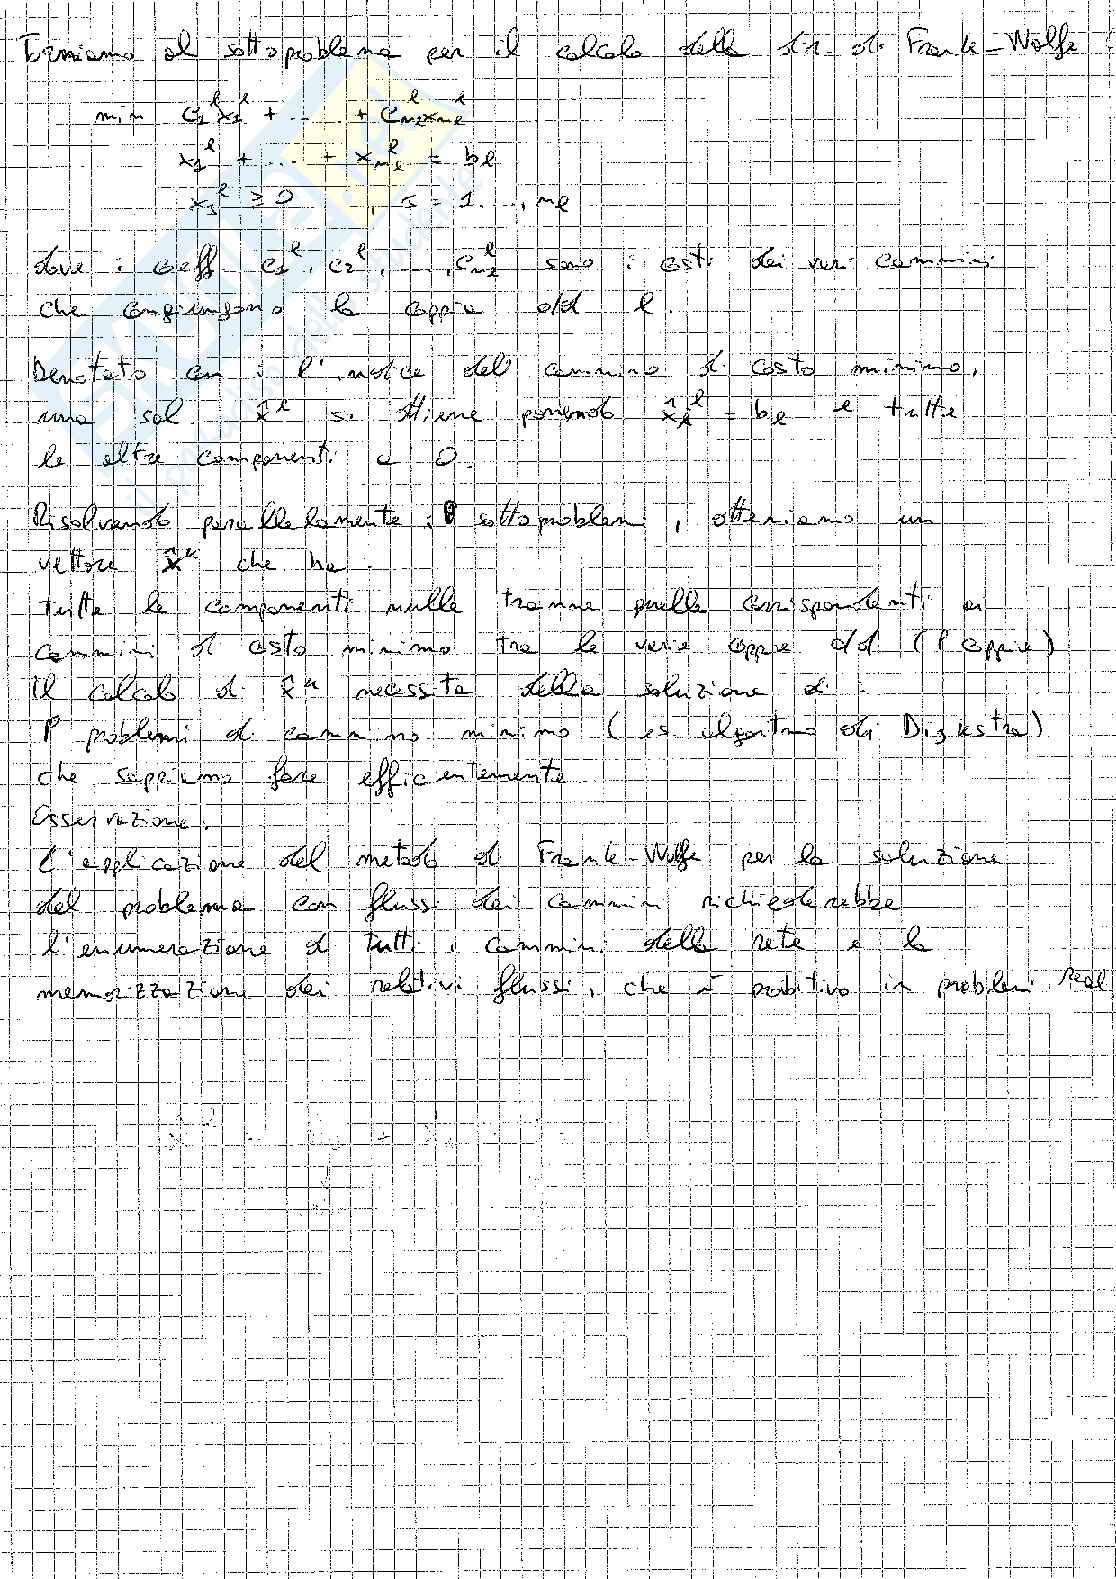 Torniamo al sottoproblema per il calcolo della dir. di Frank-Wolfe :
min c₁ˡx₁ˡ + ... + cₙₗˡxₙₗˡ
x₁ˡ + ... + xₙₗˡ = bₗ
xⱼˡ ≥ 0 , j = 1...,nₗ
dove i coeff c₁ˡ, c₂ˡ, ..., cₙₗˡ sono i costi dei vari cammini
che congiungono la coppia o/d l.
Denotato con i l'indice del cammino di costo minimo,
una sol x̂ˡ si ottiene ponendo x̂ᵢˡ = bₗ e tutte
le altre componenti a 0.
Risolvendo parallelamente i P sottoproblemi, otteniamo un
vettore x̂ᵏ che ha
tutte le componenti nulle tranne quelle corrispondenti ai
cammini di costo minimo tra le varie coppie o/d (P coppie)
Il calcolo di x̂ᵏ necessita della soluzione di
P problemi di cammino minimo (es algoritmo di Dijkstra)
che sappiamo fare efficientemente
Osservazione.
L'applicazione del metodo di Frank-Wolfe per la soluzione
del problema con flussi dei cammini richiederebbe
l'enumerazione di tutti i cammini della rete e la
memorizzazione dei relativi flussi, che è proibitivo in problemi real